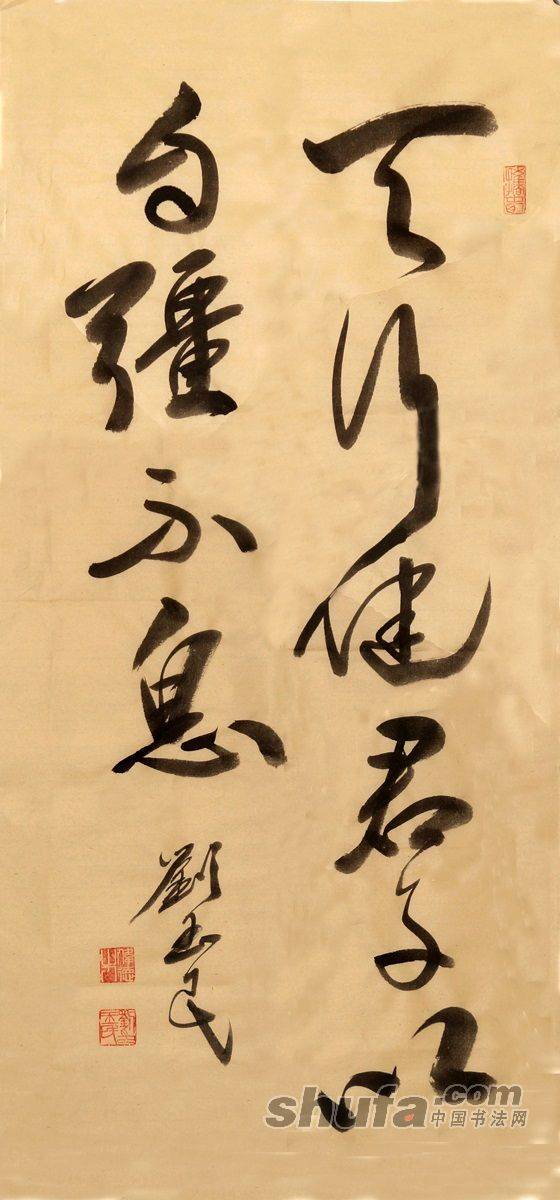 天行健君子以
自彊不息
劉玉民
shufa.com
中国书法网